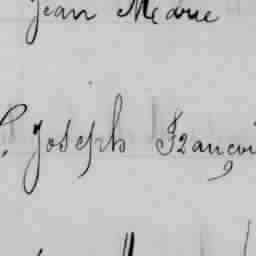 Jean Marie
Joseph Françoi